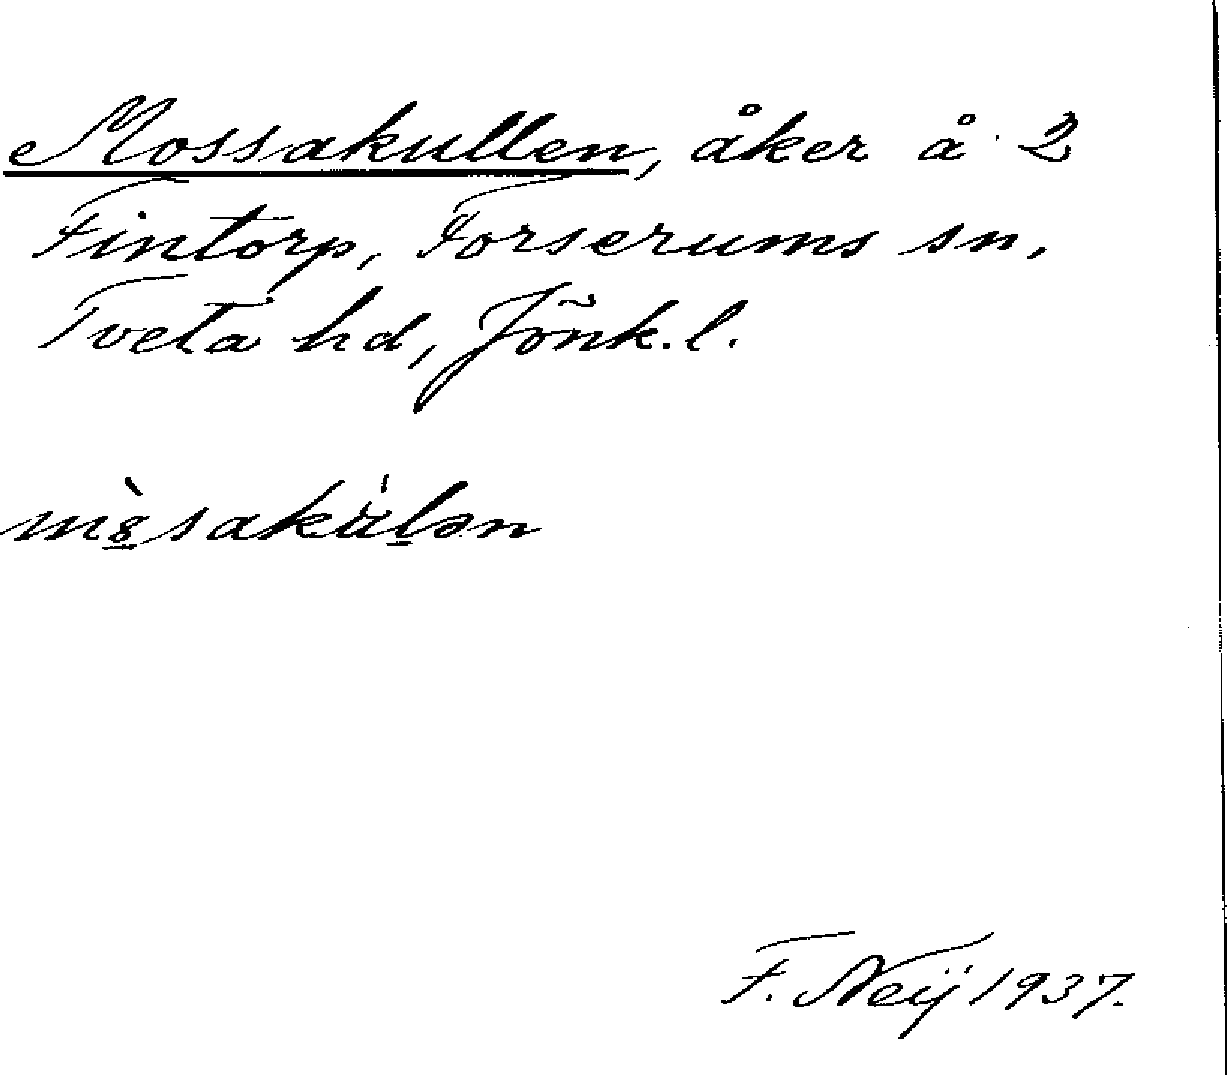 Mossakullen, åker å 2
Fintorp, Forserums sn,
Tveta hd, Jönk. l.
F. Neij 1937.